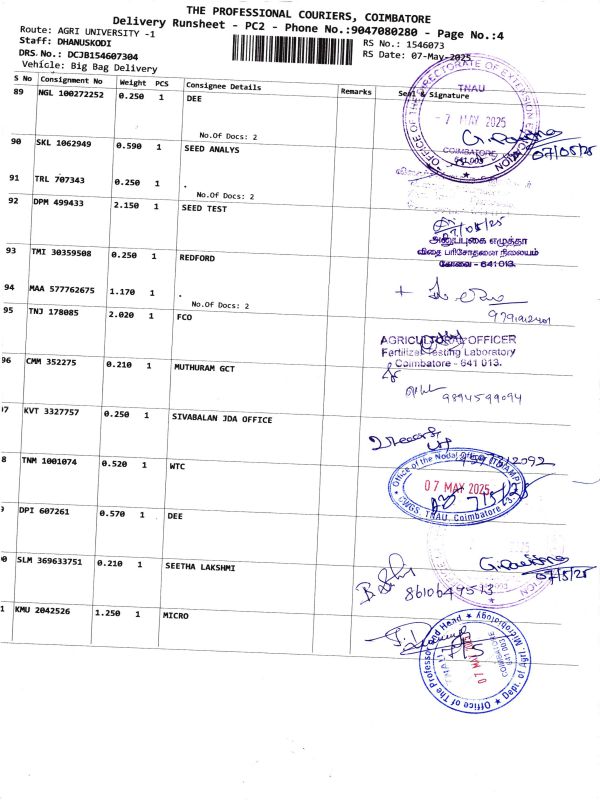 THE PROFESSIONAL COURIERS, COIMBATORE
Delivery Runsheet - PC2 - Phone No.:9047080280 - Page No.:4
Route: AGRI UNIVERSITY -1
Staff: DHANUSKODI
DRS. No.: DCJB154607304
Vehicle: Big Bag Delivery
RS No.: 1546073
RS Date: 07-May-2025
S No Consignment No Weight PCS Consignee Details Remarks Seal & Signature
89 NGL 100272252 0.250 1 DEE
No.Of Docs: 2
OFFICE OF THE DIRECTORATE OF EXTENSION EDUCATION
TNAU
- 7 MAY 2025
COIMBATORE
641 003
07/05/25
90 SKL 1062949 0.590 1 SEED ANALYS
91 TRL 707343 0.250 1 .
No.Of Docs: 2
92 DPM 499433 2.150 1 SEED TEST
அனுப்புகை எழுத்தர்
விதை பரிசோதனை நிலையம்
கோவை - 641 013.
93 TMI 30359508 0.250 1 REDFORD
94 MAA 577762675 1.170 1 .
No.Of Docs: 2
95 TNJ 178085 2.020 1 FCO
AGRICULTURAL OFFICER
Fertilizer Testing Laboratory
Coimbatore - 641 013.
96 CMM 352275 0.210 1 MUTHURAM GCT
9894599094
7 KVT 3327757 0.250 1 SIVABALAN JDA OFFICE
8 TNM 1001074 0.520 1 WTC
Office of the Nodal Officer
07 MAY 2025
CWGS, TNAU, Coimbatore - 3.
DPI 607261 0.570 1 DEE
07/5/25
0 SLM 369633751 0.210 1 SEETHA LAKSHMI
8610649513
1 KMU 2042526 1.250 1 MICRO
Office of The Professor and Head
Dept. of Agrl. Microbiology
07 MAY
TNAU
COIMBATORE
641 003